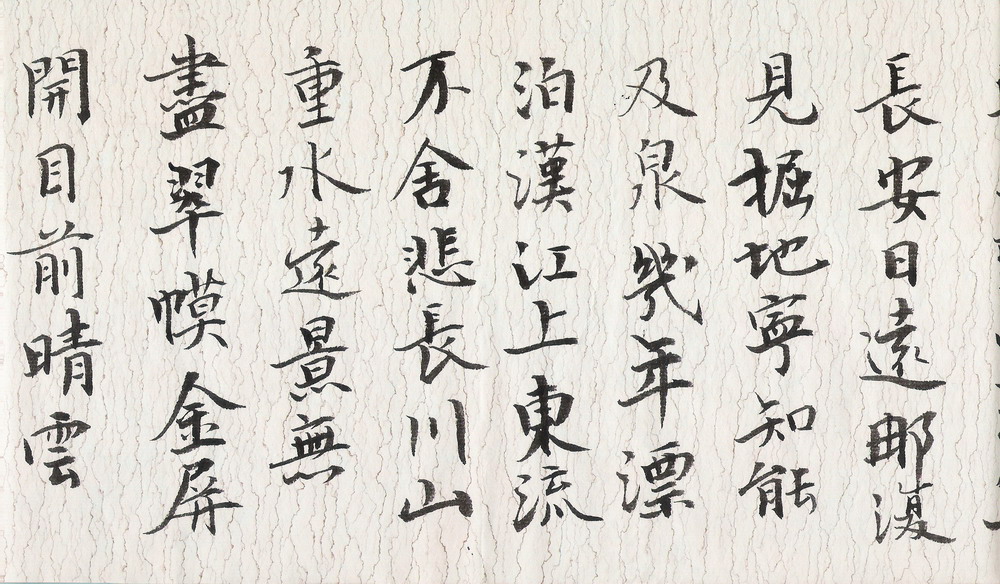 長安日遠那復
見掘地寧知能
及泉幾年漂
泊漢江上東流
不舍悲長川山
重水遠景無
盡翠幙金屏
開目前晴雲